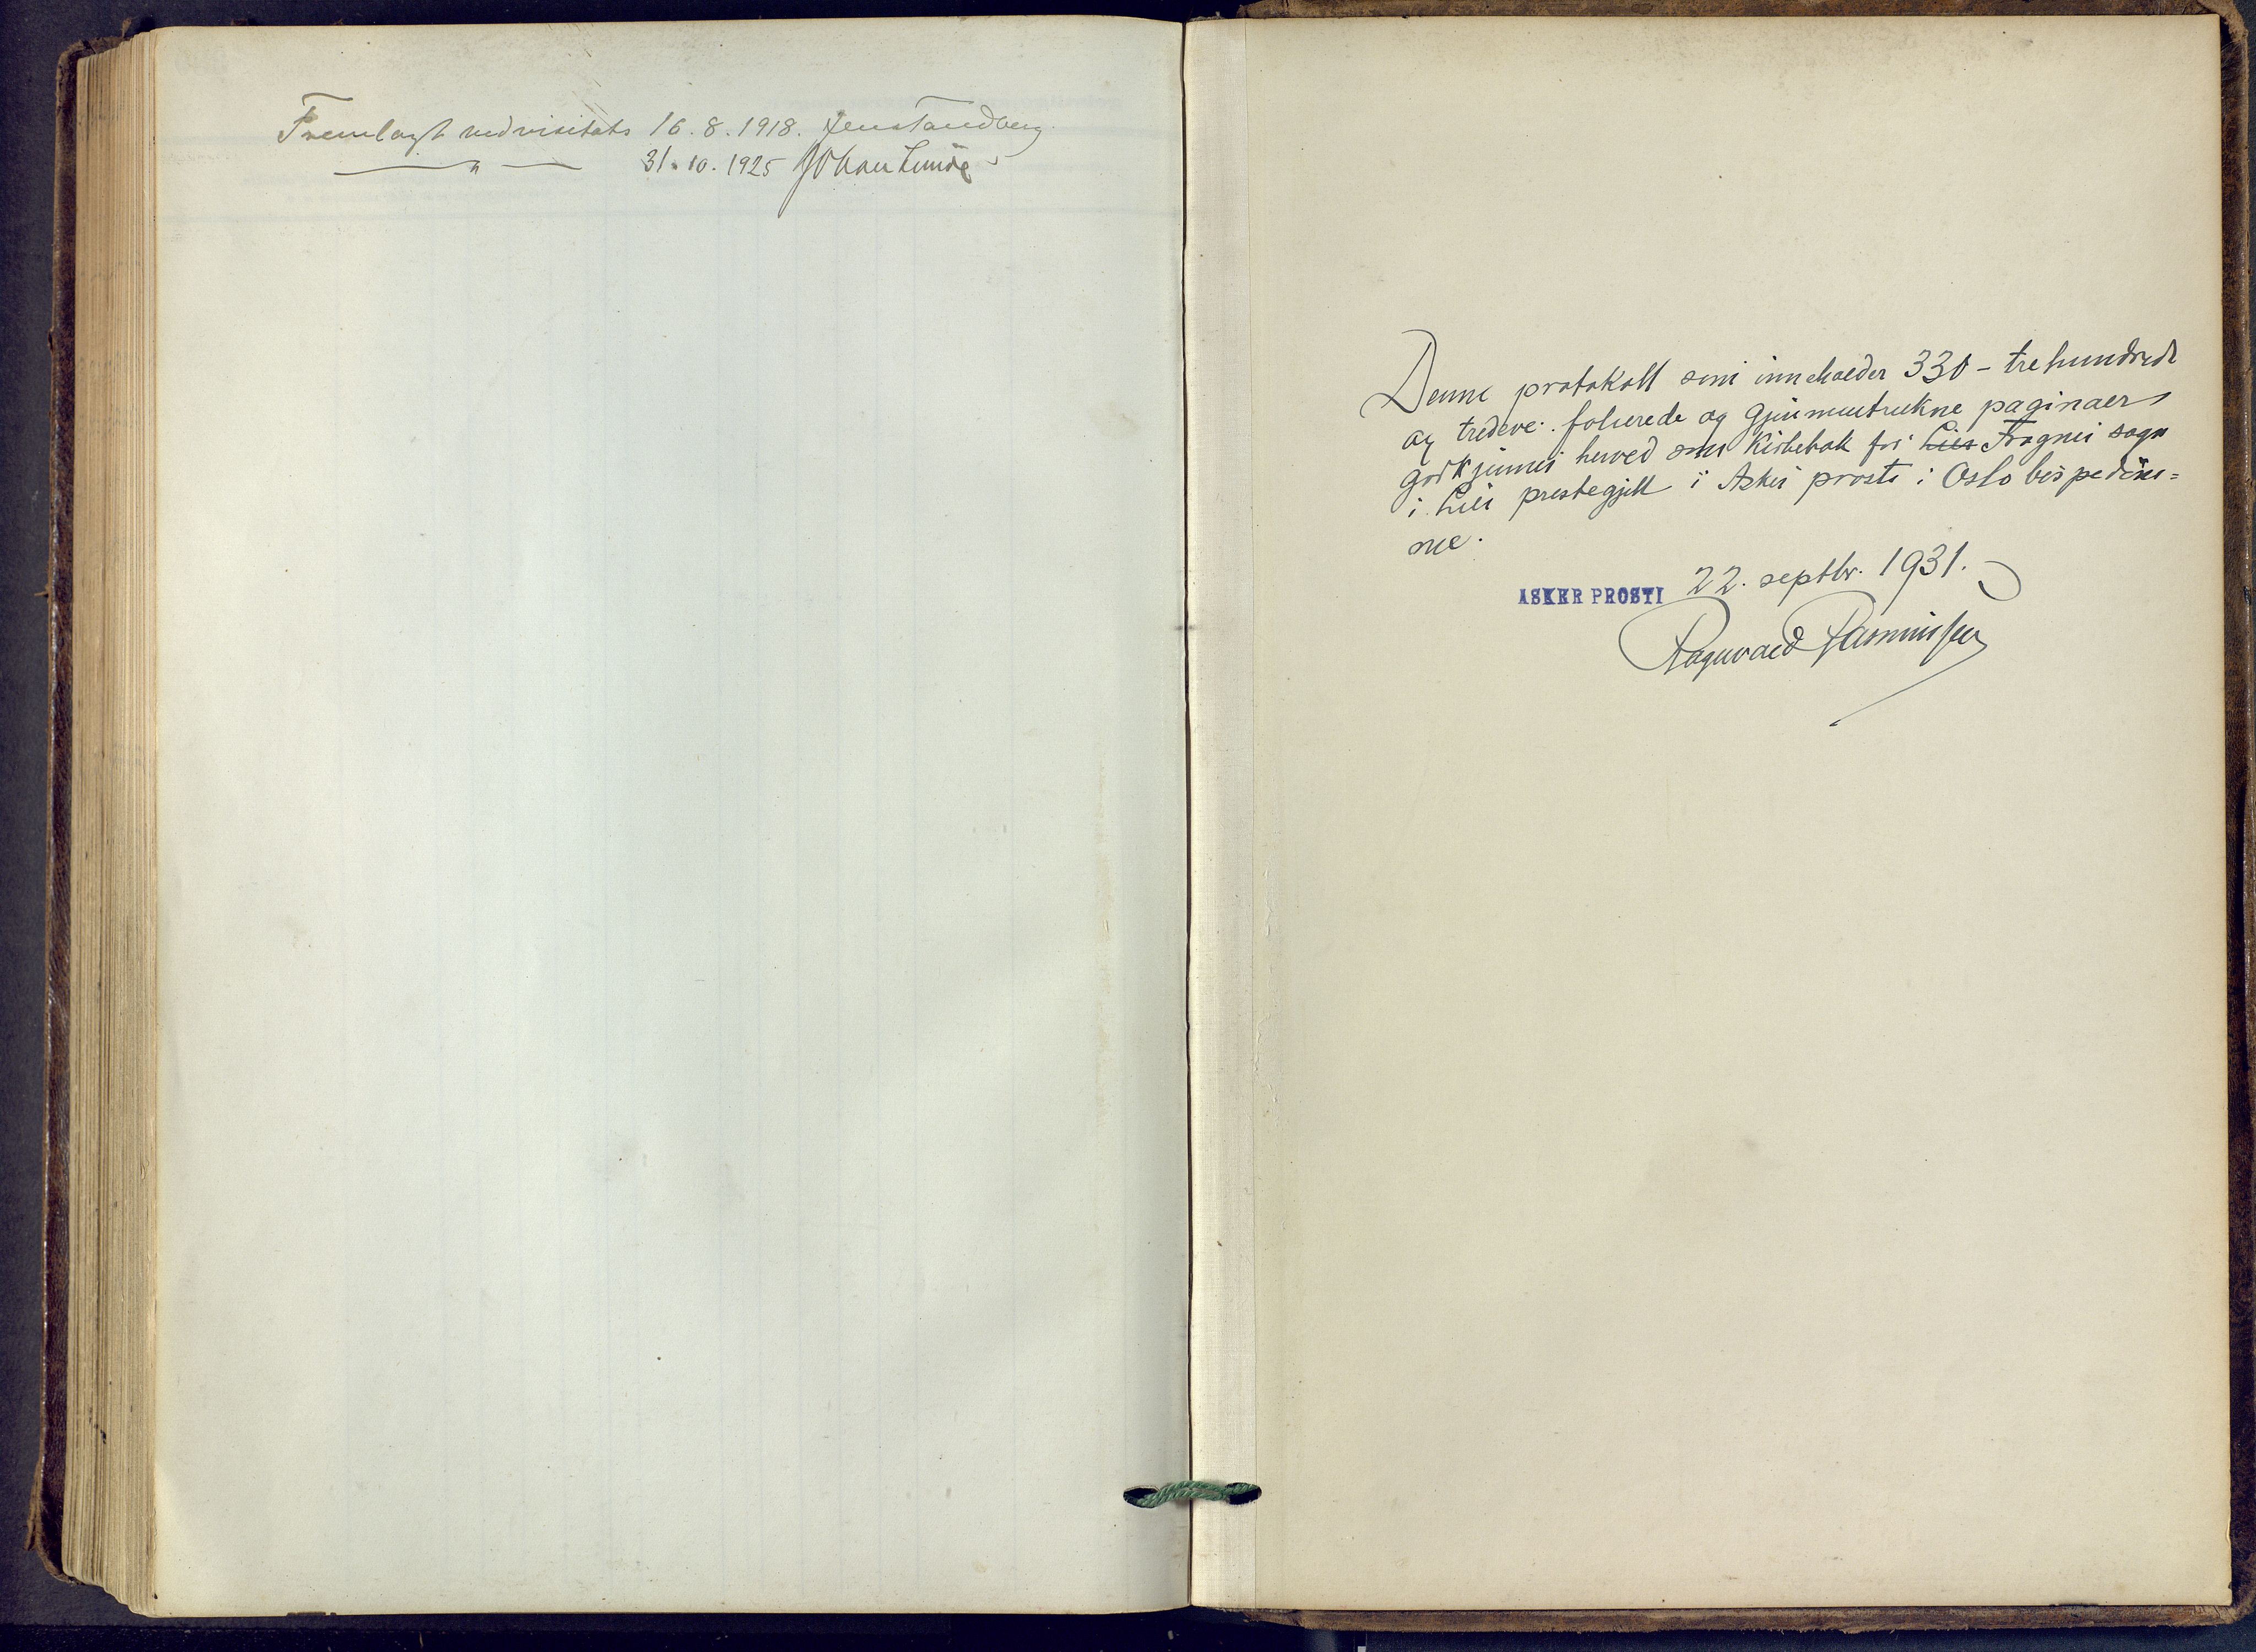 Fremlagt ved visitats 16.8.1918. Jens Tandberg.
— " — 31.10.1925 Johan Lunde
Denne protokoll som inneholder 330 - tre hundrede
og tredeve - folierede og gjennemtrukne paginaer
godkjennes herved som kirkebok for Lier Frogner sogn
i Lier prestegjell i Asker prosti i Oslo bispedöm=
me.
ASKER PROSTI 22. septbr. 1931.
Ragnvald Rasmussen